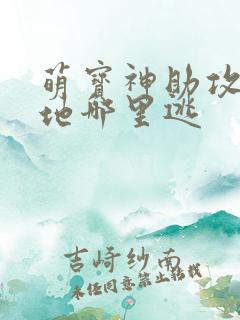 萌宝神助攻
地哪里逃
吉崎纱南
未经同意禁止转载